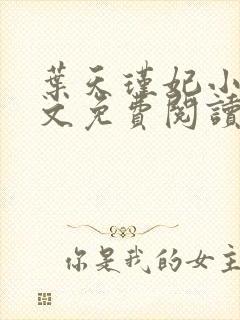 葉天瑾妃小
文免費閱讀
你是我的女主